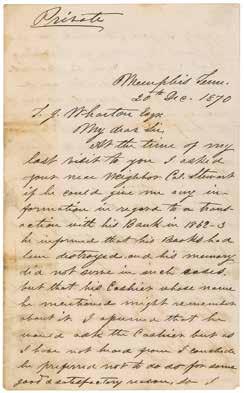 Private
Memphis Tenn.
20th Dec. 1870
T. J. Wharton Esqr.
My dear Sir,
At the time of my
last visit to you I asked
your near Neighbor Col. Stewart
if he could give me any in-
formation in regard to a trans-
action with his Bank in 1862-3
he informed that his Books had
been destroyed and his memory
did not serve in such cases,
but that his Cashier whose name
he mentioned might remember
about it. I [a]ssumed that he
would ask the Cashier but as
I have not heard from I conclude
he preferred not to do so for some
good & satisfactory reason, so I